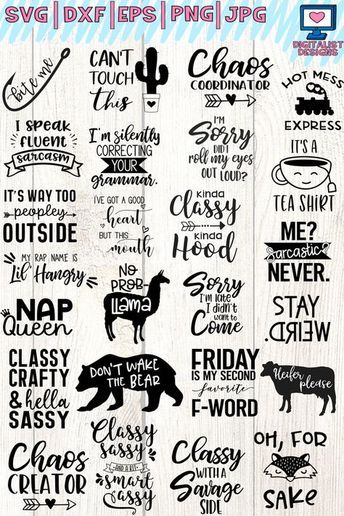 SVG|DXF|EPS|PNG|JPG
DIGITALIST
DESIGNS
bite me
CAN'T
TOUCH
This
Chaos
COORDINATOR
HOT MESS
EXPRESS
I SPEAK
FLUENT
SARCASM
I'm silently
CORRECTING
YOUR
grammar.
I'm
Sorry
DID I
ROLL MY EYES
OUT LOUD?
IT'S A
TEA SHIRT
IT'S WAY TOO
peopley
OUTSIDE
I'VE GOT A GOOD
heart
BUT THIS
mouth
kinda
Classy
kinda
Hood
ME?
Sarcastic
NEVER.
MY RAP NAME IS
Lil' Hangry
NO
PROB-
LLAMA
Sorry
I'm late
I didn't
want to
Come
STAY
WEIRD.
NAP
Queen
CLASSY
CRAFTY
& hella
SASSY
DON'T WAKE
THE BEAR
FRIDAY
IS MY SECOND
favorite
F-WORD
Heifer
please
Chaos
CREATOR
Classy
sassy
AND A BIT
smart
assy
Classy
WITH A
Savage
SIDE
OH, FOR
SAKE